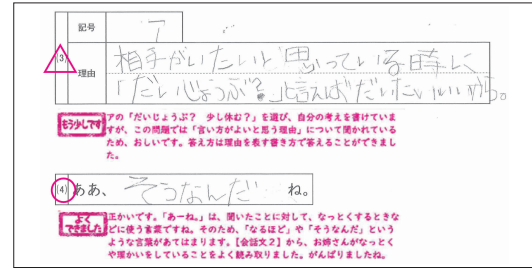 記号 ア
(3)
理由 相手がいたいと思っている時に
「だいじょうぶ?」と言えばだいたいいいから。
もう少しです
アの「だいじょうぶ? 少し休む?」を選び、自分の考えを書けていま
すが、この問題では「言い方がよいと思う理由」について聞かれている
ため、おしいです。答え方は理由を表す書き方で答えることができまし
た。
(4) ああ、そうなんだ ね。
よくできました
正かいです。「あーね。」は、聞いたことに対して、なっとくするときな
どに使う言葉ですね。そのため、「なるほど」や「そうなんだ」という
ような言葉があてはまります。【会話文2】から、お姉さんがなっとく
や理かいをしていることをよく読み取りました。がんばりましたね。